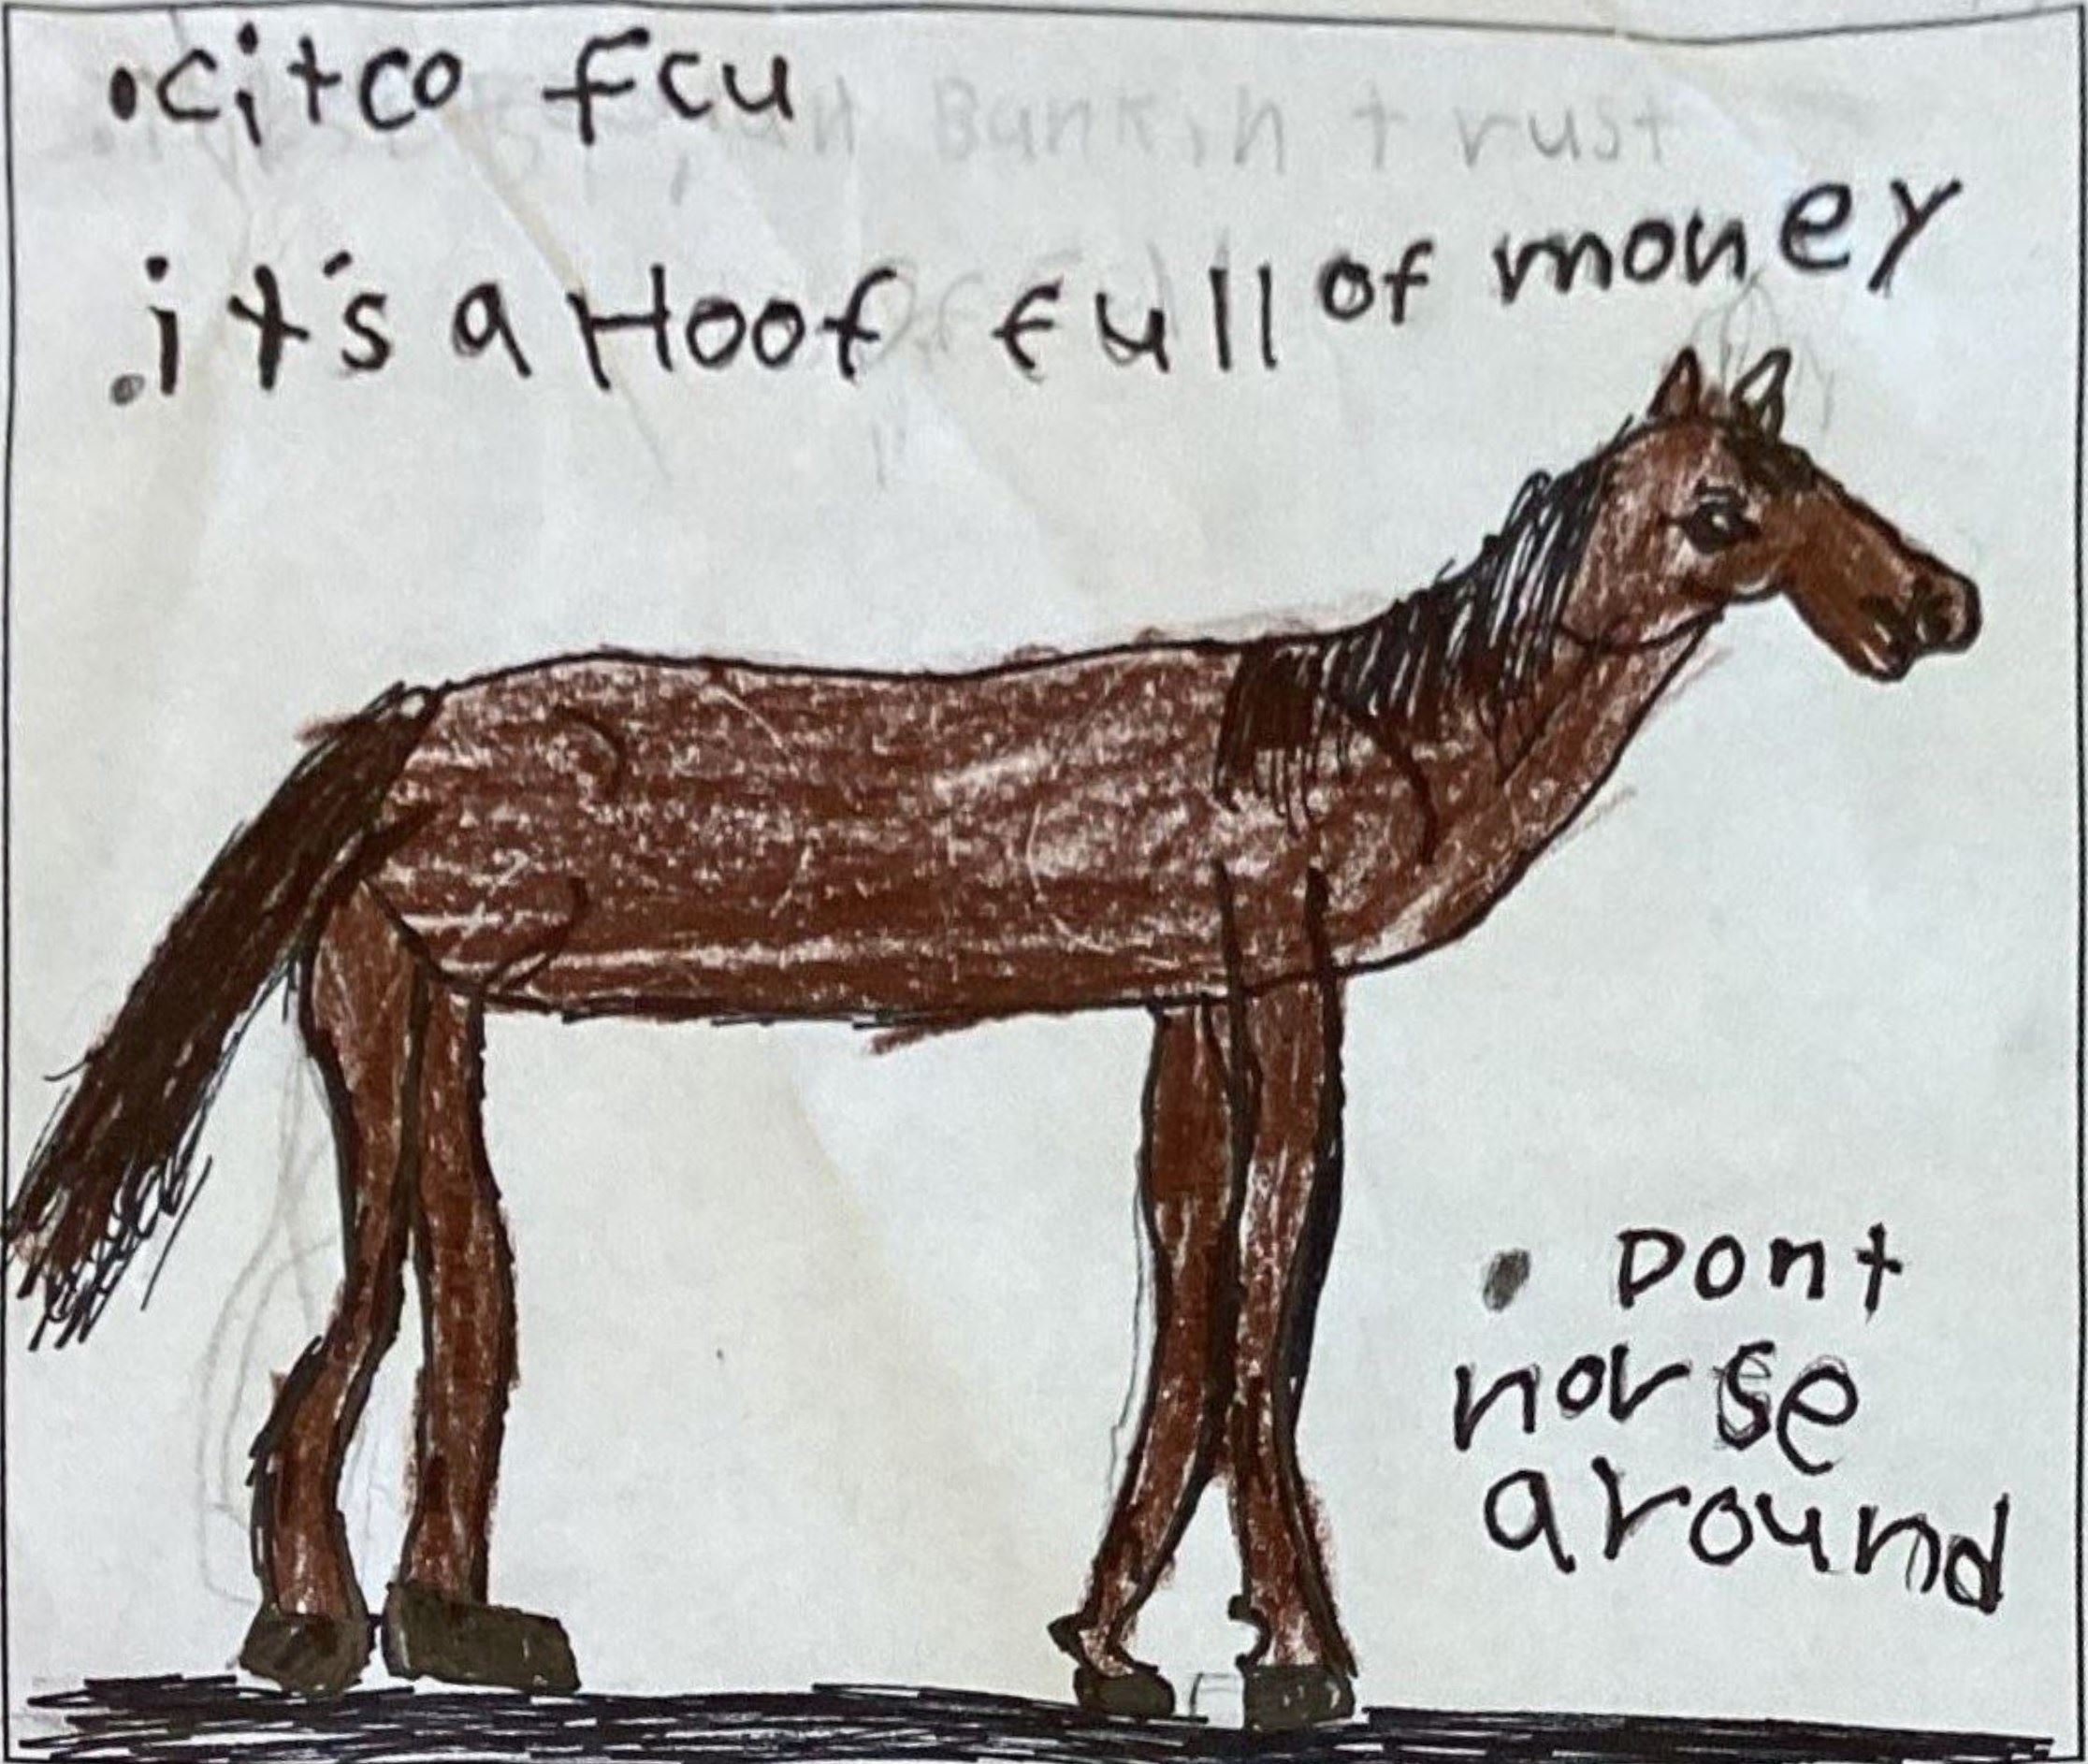 • citco fcu
Bankin trust
• it's a Hoof full of money
• Dont
horse
around